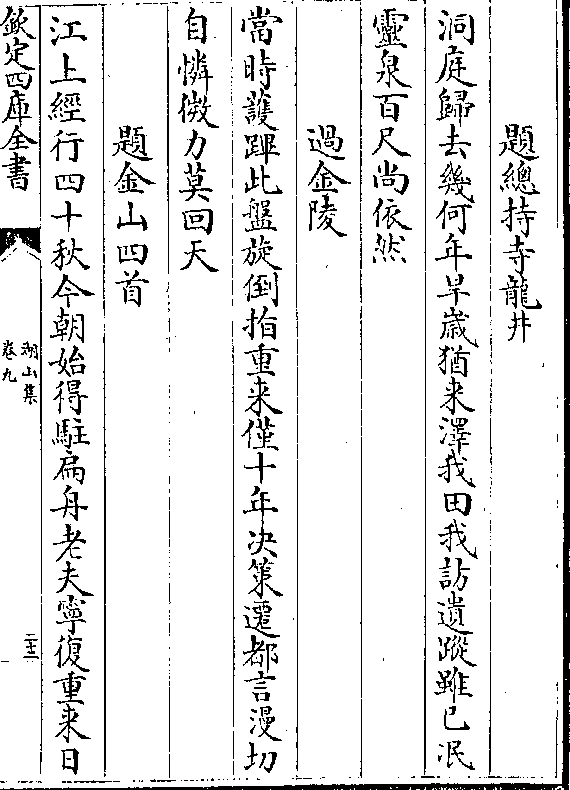 題總持寺龍井
洞庭歸去幾何年旱歲猶来澤我田我訪遺蹤雖已泯
靈泉百尺尚依然
過金陵
當時護蹕此盤旋倒指重来僅十年决策遷都言漫切
自憐微力莫回天
題金山四首
江上經行四十秋今朝始得駐扁舟老夫寧復重来日
欽定四庫全書
湖山集
卷九
二十三